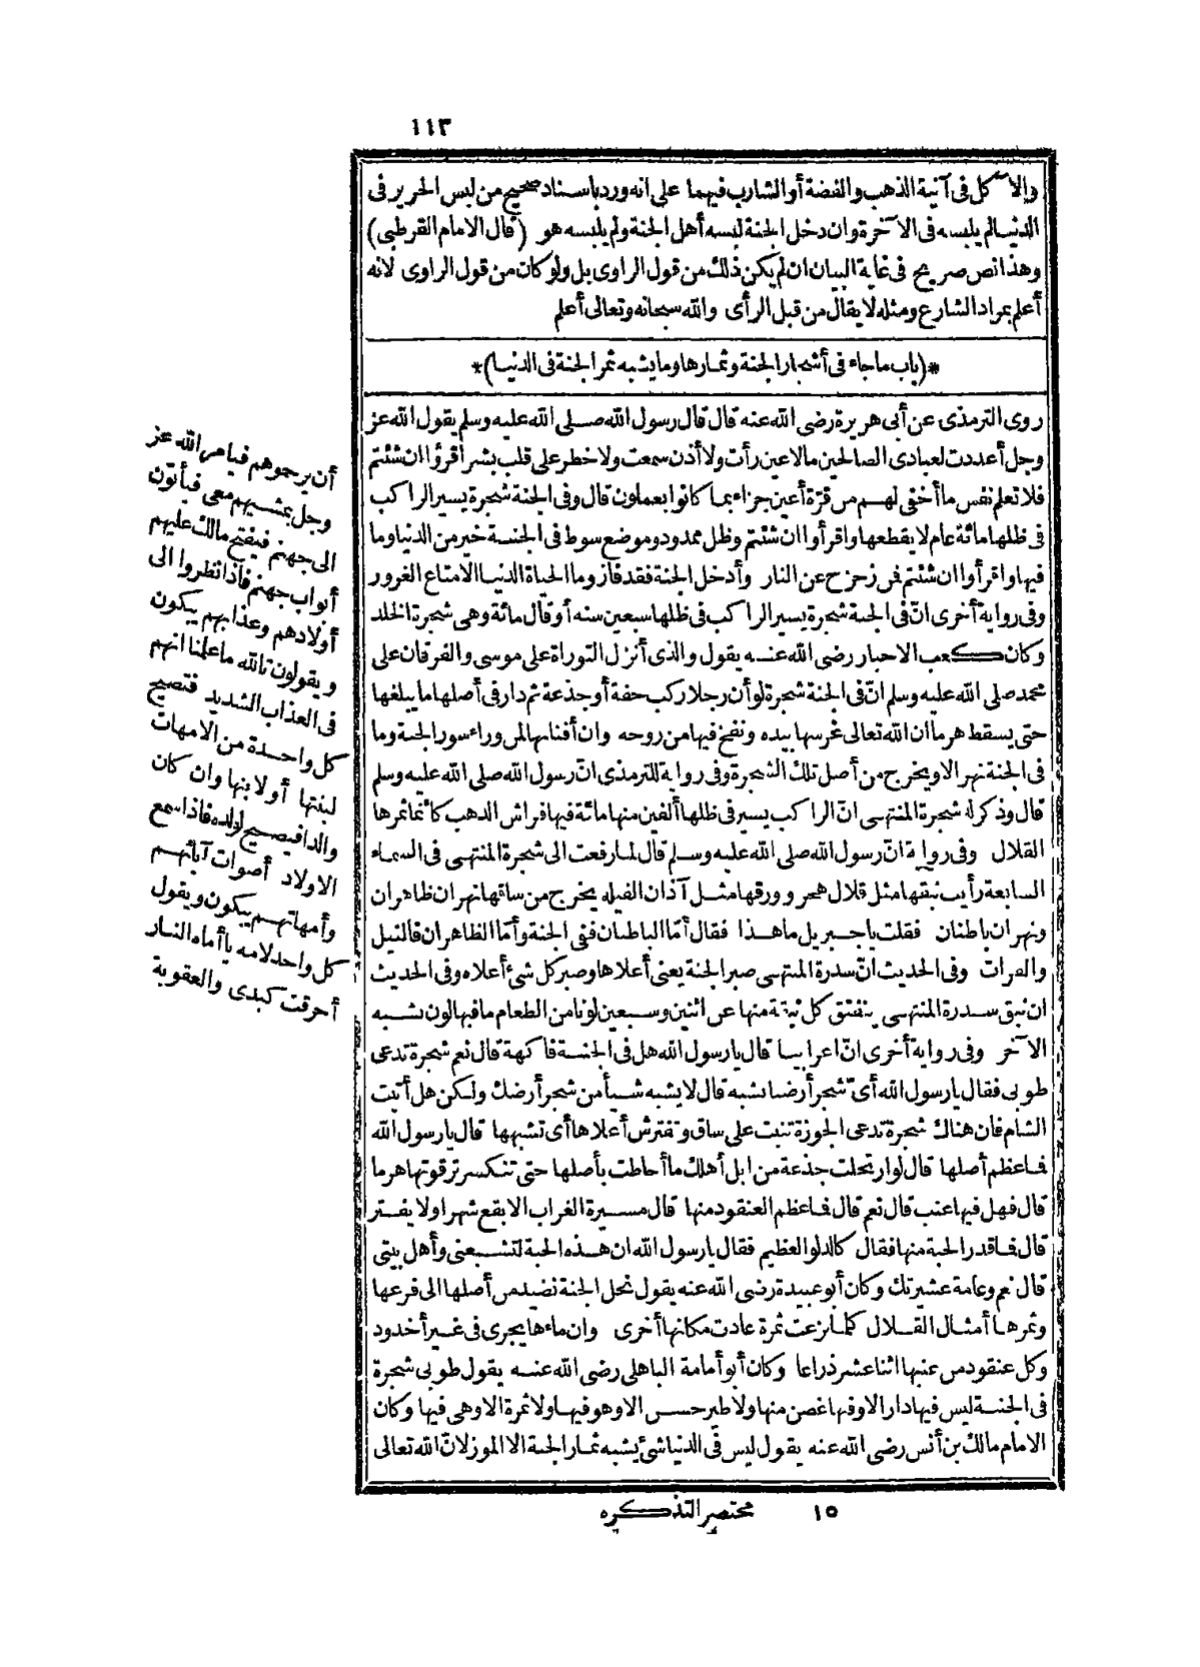 ١١٣
والآكل فى آنية الذهب والفضة أو الشارب فيهما على انه ورد باسناد صحيح من لبس الحرير فى
الدنيا لم يلبسه فى الآخرة وان دخل الجنة لبسه أهل الجنة ولم يلبسه هو (قال الامام القرطبى)
وهذا نص صريح فى غاية البيان ان لم يكن ذلك من قول الراوى بل ولو كان من قول الراوى لانه
أعلم بمراد الشارع ومثله لا يقال من قبل الرأى والله سبحانه وتعالى أعلم
*(باب ما جاء فى أشجار الجنة وثمارها وما يشبه ثمر الجنة فى الدنيا)*
روى الترمذى عن أبى هريرة رضى الله عنه قال قال رسول الله صلى الله عليه وسلم يقول الله عز
وجل أعددت لعبادى الصالحين مالا عين رأت ولا أذن سمعت ولا خطر على قلب بشر اقرؤا ان شئتم
فلا تعلم نفس ما أخفى لهم من قرّة أعين جزاء بما كانوا يعملون قال وفى الجنة شجرة يسير الراكب
فى ظلها مائة عام لا يقطعها واقرأوا ان شئتم وظل ممدود وموضع سوط فى الجنة خير من الدنيا وما
فيها واقرأوا ان شئتم فمن زحزح عن النار وأدخل الجنة فقد فاز وما الحياة الدنيا الا متاع الغرور
وفى رواية أخرى انّ فى الجنة شجرة يسير الراكب فى ظلها سبعين سنه أو قال مائة وهى شجرة الخلد
وكان كعب الاحبار رضى الله عنه يقول والذى أنزل التوراة على موسى والفرقان على
محمد صلى الله عليه وسلم انّ فى الجنة شجرة لو أن رجلا ركب حقة أو جذعة ثم دار فى أصلها ما يبلغها
حتى يسقط هرما ان الله تعالى غرسها بيده ونفخ فيها من روحه وان أفنانها لمن وراء سور الجنة وما
فى الجنة نهر الا ويخرج من أصل تلك الشجرة وفى رواية للترمذى انّ رسول الله صلى الله عليه وسلم
قال وذكر له شجرة المنتهى انّ الراكب يسير فى ظلها ألفين منها مائة فيها فراش الذهب كأنّما ثمرها
القلال وفى رواية انّ رسول الله صلى الله عليه وسلم قال لما رفعت الى شجرة المنتهى فى السماء
السابعة رأيت نبقها مثل قلال هجر وورقها مثل آذان الفيله يخرج من ساقها نهران ظاهران
ونهران باطنان فقلت يا جبريل ما هذا فقال أمّا الباطنان ففى الجنة وأمّا الظاهران فالنيل
والفرات وفى الحديث انّ سدرة المنتهى صبر الجنة يعنى أعلاها وصبر كل شئ أعلاه وفى الحديث
ان نبق سدرة المنتهى ينفتق كل نبقة منها عن اثنين وسبعين لونا من الطعام ما فيها لون يشبه
الآخر وفى رواية أخرى انّ اعرابيا قال يا رسول الله هل فى الجنة فاكهة قال نعم شجرة تدعى
طوبى فقال يا رسول الله أىّ شجر أرضنا تشبه قال لا يشبه شيأ من شجر أرضك ولكن هل أتيت
الشام فان هناك شجرة تدعى الجوزة تنبت على ساق وتفترش أعلاها أى تشبهها قال يا رسول الله
فما عظم أصلها قال لو ارتحلت جذعة من ابل أهلك ما أحاطت بأصلها حتى تنكسر ترقوتها هرما
قال فهل فيها عنب قال نعم قال فما عظم العنقود منها قال مسيرة الغراب الابقع شهرا ولا يفتر
قال فما قدر الحبة منها فقال كالدلو العظيم فقال يا رسول الله ان هذه الحبة لتشبعنى وأهل بيتى
قال نعم وعامة عشيرتك وكان أبو عبيدة رضى الله عنه يقول نخل الجنة نضيد من أصلها الى فرعها
وثمرها أمثال القلال كلما نزعت ثمرة عادت مكانها أخرى وان ماءها يجرى فى غير أخدود
وكل عنقود من عنبها اثنا عشر ذراعا وكان أبو أمامة الباهلى رضى الله عنه يقول طوبى شجرة
فى الجنة ليس فيها دار الا وفيها غصن منها ولا طير حسن الا وهو فيها ولا ثمرة الا وهى فيها وكان
الامام مالك بن أنس رضى الله عنه يقول ليس فى الدنيا شئ يشبه ثمار الجنة الا الموز لانّ الله تعالى
أن يرجموهم فيأمر الله عز
وجل بمشيهم معى فيأتون
الى جهنم فيفتح مالك عليهم
أبواب جهنم فاذا نظروا الى
أولادهم وعذابهم يبكون
ويقولون تالله ما علمنا انهم
فى العذاب الشديد فتصيح
كل واحدة من الامهات
لبنتها أو لابنها وان كان
والدا فيصيح لولده فاذا سمع
الاولاد أصوات آبائهم
وأمهاتهم يبكون ويقول
كل واحد لامه يا أماه النار
أحرقت كبدى والعقوبة
١٥ مختصر التذكره